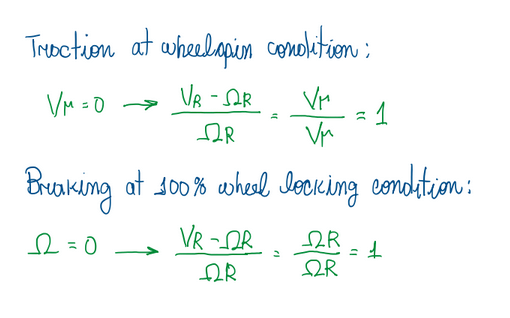 Traction at wheelspin condition:
Vr = 0 → (VR - ΩR)/(ΩR) = Vr/Vr = 1
Breaking at 100% wheel locking condition:
Ω = 0 → (VR - ΩR)/(ΩR) = (ΩR)/(ΩR) = 1